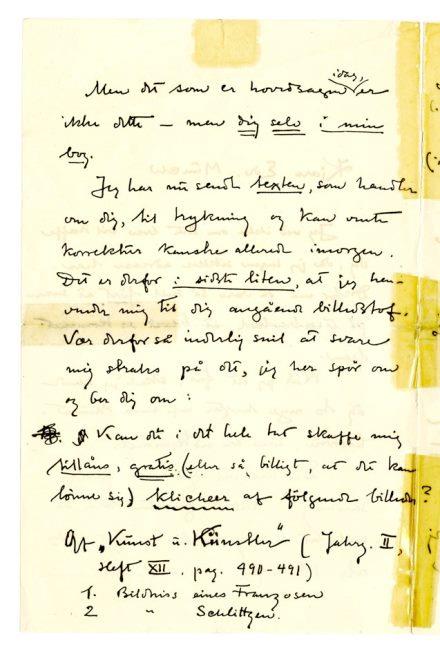 idag,
Men det som er hovedsagen er
ikke dette – men dig selv i min
bog.
Jeg har nu sendt texten, som handler
om dig, til trykning og kan vente
korrektur kanske allerede imorgen.
Det er derfor i sidste liten, at jeg hen-
vender mig til dig angående billedstof.
Vær derfor så inderlig snil at svare
mig straks på det, jeg her spør om
og ber dig om:
Kan du i det hele tat skaffe mig
tillåns, gratis (eller så billigt, at det kan
lønne sig) klicheer af følgende billeder?
Af „Kunst u. Künstler" (Jahrg. II,
Heft XII. pag. 490-491)
1. Bildniss eines Franzosen
2 " Schlittgen.